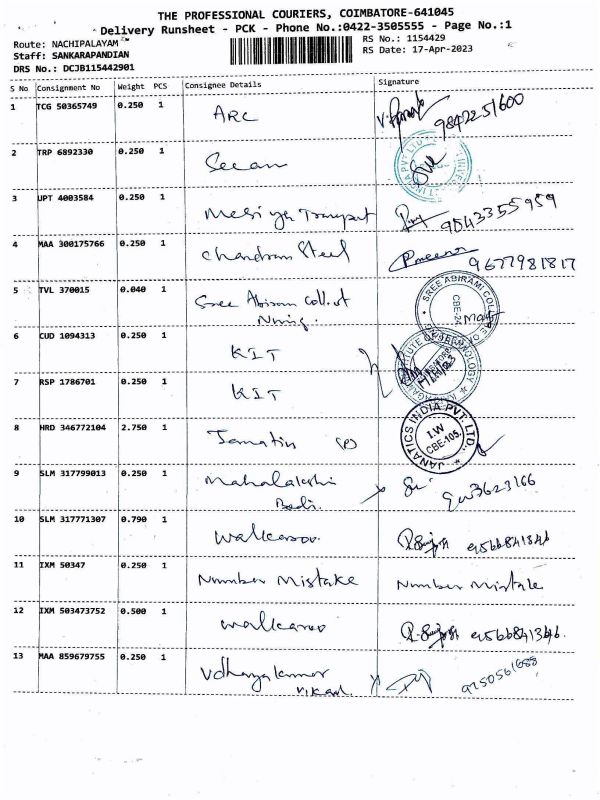 THE PROFESSIONAL COURIERS, COIMBATORE-641045
Delivery Runsheet - PCK - Phone No.:0422-3505555 - Page No.:1
Route: NACHIPALAYAM
RS No.: 1154429
Staff: SANKARAPANDIAN
RS Date: 17-Apr-2023
DRS No.: DCJB115442901
S No Consignment No Weight PCS Consignee Details Signature
1 TCG 50365749 0.250 1 ARC 9842251600
2 TRP 6892330 0.250 1
3 UPT 4003584 0.250 1 9543355959
4 MAA 300175766 0.250 1 Chandram Steel 9677981817
5 TVL 370015 0.040 1 Sree Abirami
SREE ABIRAMI
CBE-24
6 CUD 1094313 0.250 1 KIT
7 RSP 1786701 0.250 1 KIT
8 HRD 346772104 2.750 1
JANATICS INDIA PVT. LTD.,
I.W
CBE-105.
9 SLM 317799013 0.250 1
10 SLM 317771307 0.790 1 9566841346
11 IXM 50347 0.250 1 Number Mistake Number Mistake
12 IXM 503473752 0.500 1 9566841346.
13 MAA 859679755 0.250 1